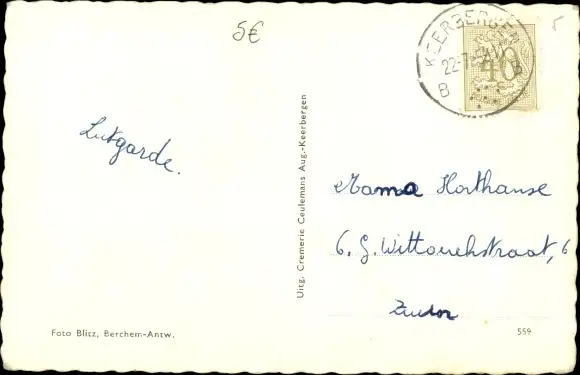 5€
KEERBERGEN
22-7
B B
40
Lutgarde.
Uitg. Cremerie Ceulemans Aug.-Keerbergen
Mama Horthanse
6. G. Wittouckstraat, 6
Foto Blitz, Berchem-Antw.
559